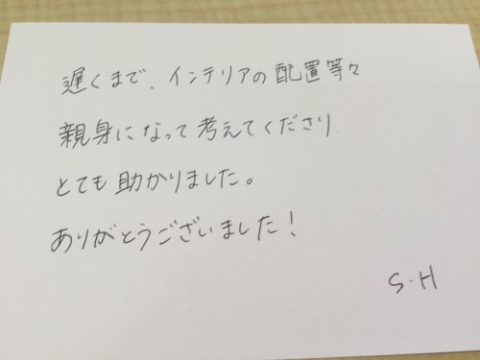 遅くまで、インテリアの配置等々
親身になって考えてくださり
とても助かりました。
ありがとうございました！
S.H